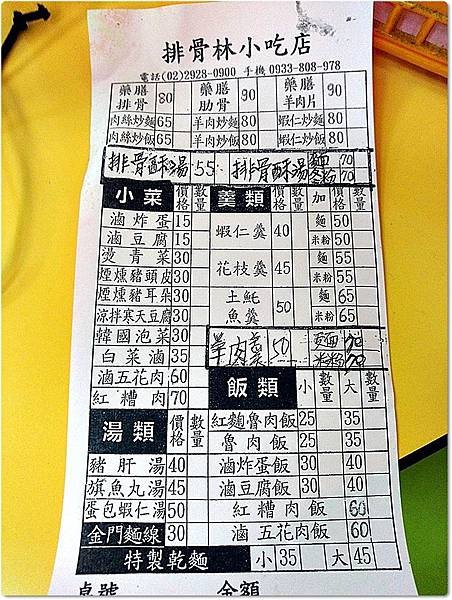 排骨林小吃店
電話(02)2928-0900 手機0933-808-978
藥膳排骨 80 藥膳肋骨 90 藥膳羊肉片 90
肉絲炒麵 65 羊肉炒麵 80 蝦仁炒麵 80
肉絲炒飯 65 羊肉炒飯 80 蝦仁炒飯 80
排骨酥湯 55 排骨酥湯 麵 70 冬粉 70
小菜 價格 數量 羹類 價格 數量 加 價格 數量
滷炸蛋 15 蝦仁羹 40 麵 50
滷豆腐 15 米粉 50
燙青菜 30 花枝羹 45 麵 55
煙燻豬頭皮 30 米粉 55
煙燻豬耳朵 30 土魠魚羹 50 麵 65
涼拌寒天豆腐 30 米粉 65
韓國泡菜 30 羊肉羹 50 麵 70
白菜滷 35 米粉 70
滷五花肉 60 飯類 小 數量 大 數量
紅糟肉 70
湯類 價格 數量 紅麴魯肉飯 25 35
魯肉飯 25 35
豬肝湯 40 滷炸蛋飯 30 40
旗魚丸湯 45 滷豆腐飯 30 40
蛋包蝦仁湯 50 紅糟肉飯 60
金門麵線 30 滷五花肉飯 60
特製乾麵 小 35 大 45
桌號 金額